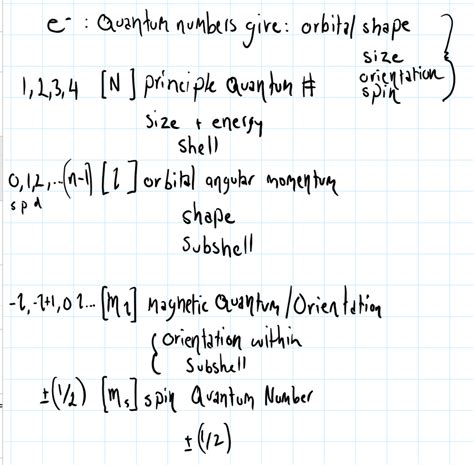 e⁻ : Quantum numbers give: orbital shape
size
orientation
spin
1,2,3,4 [N] principle Quantum #
size + energy
shell
0,1,2,...(n-1) [l] orbital angular momentum
s p d
shape
subshell
-l,-l+1,0 l... [ml] magnetic Quantum/Orientation
Orientation within
subshell
±(1/2) [ms] spin Quantum Number
±(1/2)